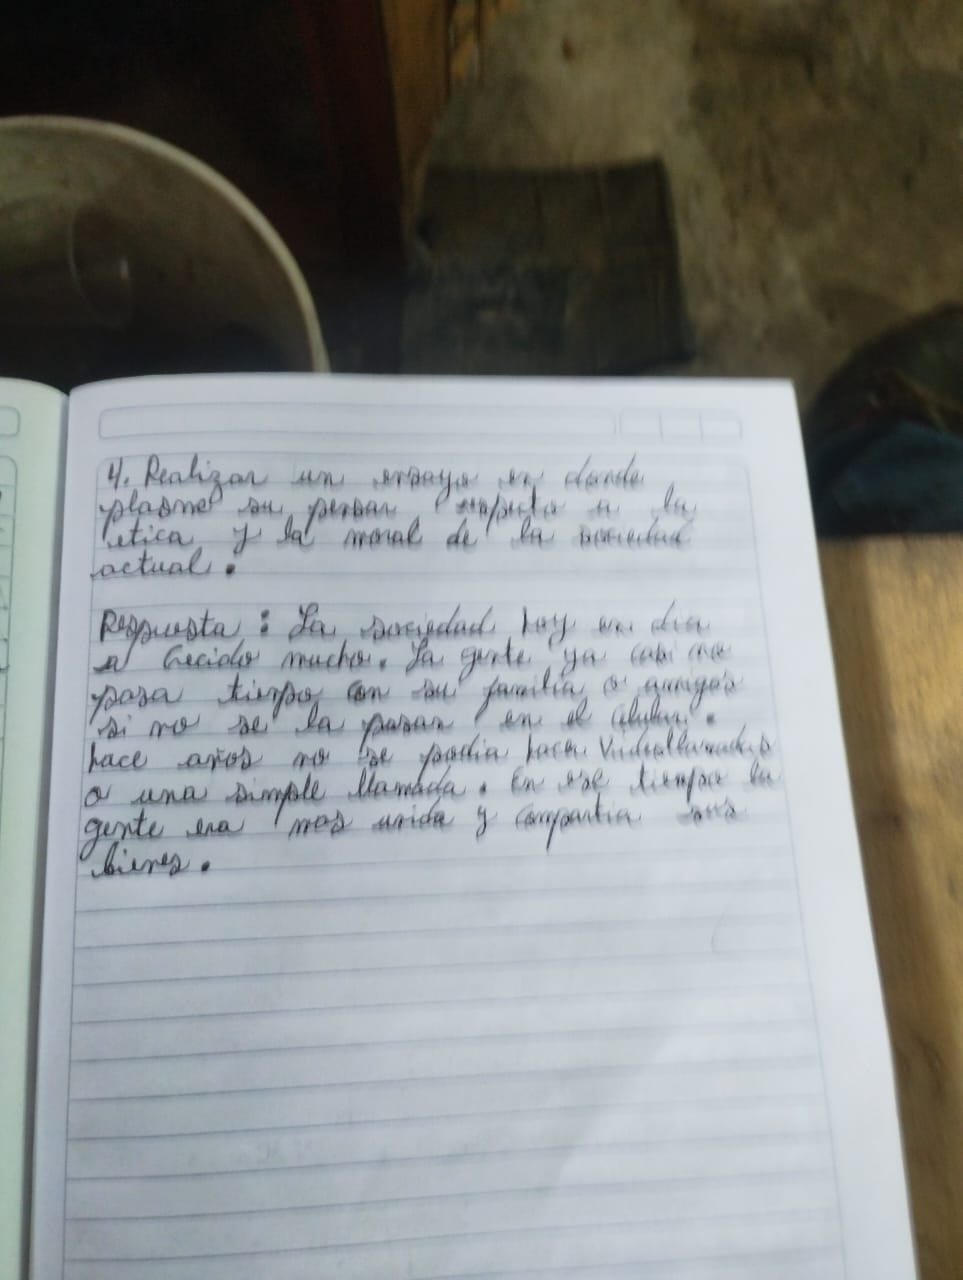 4. Realizar un ensayo en donde
plasme su pensar respecto a la
etica y la moral de la sociedad
actual.
Respuesta: La sociedad hoy en dia
a Crecido mucho. La gente ya casi no
pasa tiempo con su familia o amigos
si no se la pasan en el celular.
hace años no se podia hacer Videollamadas
o una simple llamada. En ese tiempo la
gente era mas unida y compartia sus
bienes.